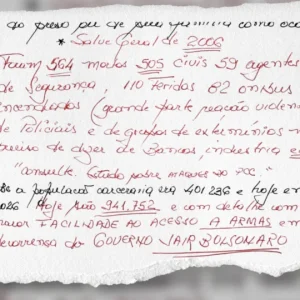 do preso ou de sua família como oco
* Salve Geral de 2006
Foram 564 mortos 505 civis 59 agentes
de Segurança, 110 feridos 82 onibus
incendiados (grande parte reação violen
de Policiais e de grupos de extermínios
de dizer de Bancos, industria e
"consulte. Estado sobre ataques do PCC."
a população carceraria era 401.236 e hoje em
2026 Hoje são 941.752 e com detalhe com
maior FACILIDADE AO ACESSO A ARMAS em
decorrença do GOVERNO JAIR BOLSONARO